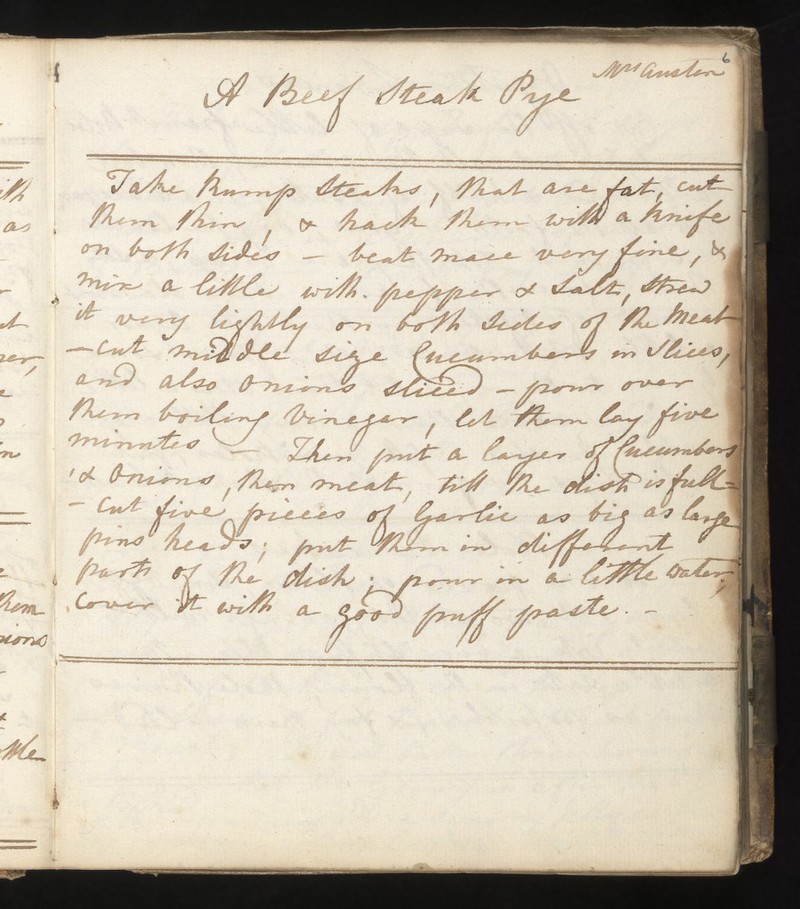 6
Mrs Austen
A Beef Steak Pye
Take Rump Steaks, that are fat, cut
them thin, & hack them with a knife
on both sides – beat mace very fine, &
mix a little with pepper & Salt, strew
it very lightly on both sides of the Meat
– Cut middle size Cucumbers in Slices,
and also Onions sliced – pour over
them boiling Vinegar, let them lay five
minutes – Then put a layer of Cucumbers
& Onions, then meat, till the dish is full –
– Cut five pieces of Garlic as big as large
pins heads; put them in different
parts of the dish; pour in a little water;
Cover it with a good puff paste. –
ith
as
them